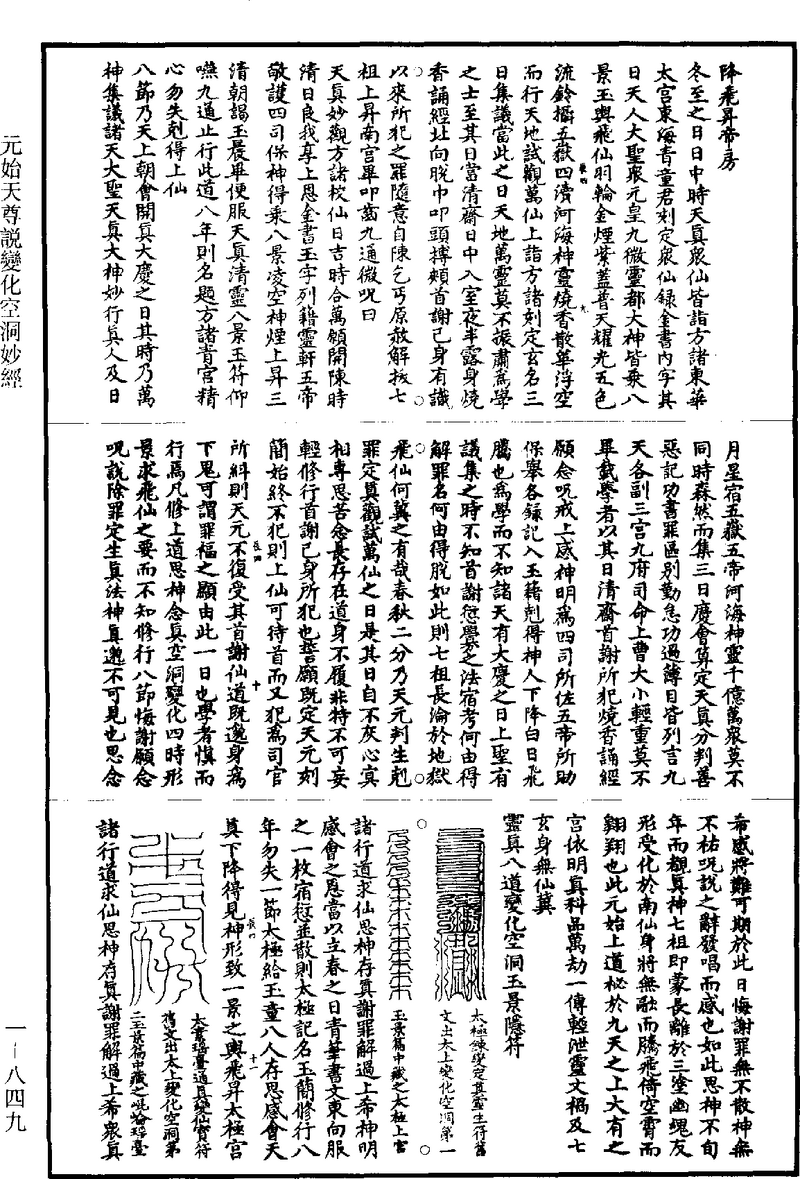 降飛昇帝房
冬至之日日中時天真衆仙皆詣方諸東華
太宮東海青童君刻定衆仙錄金書內字其
日天人大聖衆元皇九微靈都大神皆乘八
景玉輿飛仙羽輪金煙紫蓋善天耀光五色
流鈴攝五嶽四瀆河海神靈燒香散華浮空
而行天地試觀萬仙上詣方諸刻定玄名三
日集議當此之日天地萬靈莫不振肅爲學
之士至其日當清齋日中入室夜半露身燒
香誦經北向脫巾叩頭搏頰首謝己身有識
以來所犯之罪隨意自陳乞丐原赦解拔七
祖上昇南宮畢叩齒九通微呪曰
天真妙觀方諸校仙日吉時合萬願開陳時
清日良我享上恩金書玉字列籍靈軒五帝
敬護四司保神得乘八景凌空神煙上昇三
清朝謁玉晨畢便服天真清靈八景玉符仰
嚥九過止行此道八年則名題方諸青宮精
心勿失剋得上仙
八節乃天上朝會開真大慶之日其時乃萬
神集議諸天大聖天真大神妙行真人及日
月星宿五嶽五帝河海神靈千億萬衆莫不
同時森然而集三日慶會算定天真分判善
惡記功書罪區別勤怠功過薄目皆列言九
天各副三宮九府司命上曹大小輕重莫不
畢哉學者以其日清齋首謝所犯燒香誦經
願念呪戒上感神明爲四司所佐五帝所助
保舉各錄記入玉籍剋得神人下降白日飛
騰也爲學而不知諸天有大慶之日上聖有
議集之時不知首謝愆舋之法宿考何由得
解罪名何由得脫如此則七祖長淪於地獄
飛仙何冀之有哉春秋二分乃天元判生剋
罪定算觀試萬仙之日是其日自不灰心寘
相專思苦念長存在道身不履非特不可妄
輕修行首謝己身所犯也誓願既定天元刻
簡始終不犯則上仙可待首而又犯爲司官
所糾則天元不復受其首謝仙道既邈身爲
下鬼可謂罪福之願由此一日也學者慎而
行焉凡修上道思神念真空洞變化四時形
景求飛仙之要而不知修行八節悔謝願念
呪說除罪定生真法神真邈不可見也思念
希感將難可期於此日悔謝罪無不散神無
不祐呪說之辭發唱而感也如此思神不旬
年而覩真神七祖即蒙長離於三塗幽魂友
形受化於南仙身將無敵而騰飛倚空霄而
翱翔也此元始上道祕於九天之上大有之
宮依明真科品萬劫一傳輕泄靈文禍及七
玄身無仙冀
靈真八道變化空洞玉景隱符
太極鍊變定真靈生符舊
文出太上變化空洞第一
玉景篇中藏之太極上宮
諸行道求仙思神存真謝罪解過上希神明
感會之恩當以立春之日青筆書文東向服
之一枚宿愆並散則太極記名玉簡修行八
年勿失一節太極給玉童八人存思感會天
真下降得見神形致一景之輿飛昇太極宮
太素瑤臺通真變仙寶符
舊文出太上變化空洞第
二玉景篇中藏之於瑤臺
諸行道求仙思神存真謝罪解過上希衆真
元始天尊説變化空洞妙經
一—八四九